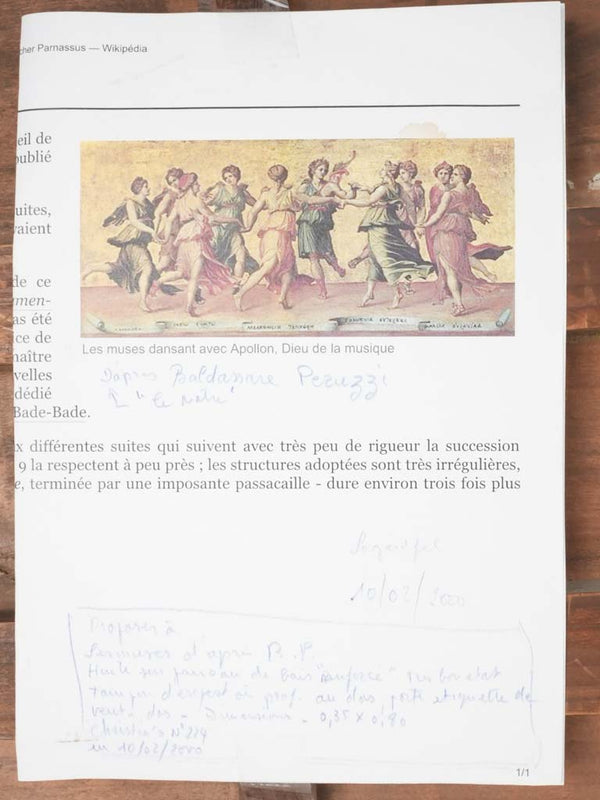 cher Parnassus — Wikipédia
eil de
publié
uites,
vaient
de ce
men-
as été
ce de
naître
velles
dédié
Bade-Bade.
Les muses dansant avec Apollon, Dieu de la musique
D'apres Baldassare Peruzzi
x différentes suites qui suivent avec très peu de rigueur la succession
9 la respectent à peu près ; les structures adoptées sont très irrégulières,
e, terminée par une imposante passacaille - dure environ trois fois plus
10/02/2000
Proposer à
d'apres B. P.
Huile sur panneau de bois "renforcé" très bon état
Tampon d'expert où prof. au dos, porte etiquette de
vente dos - Dimensions - 0,35 x 0,80
Christie's N° 224
en 10/02/2000
1/1